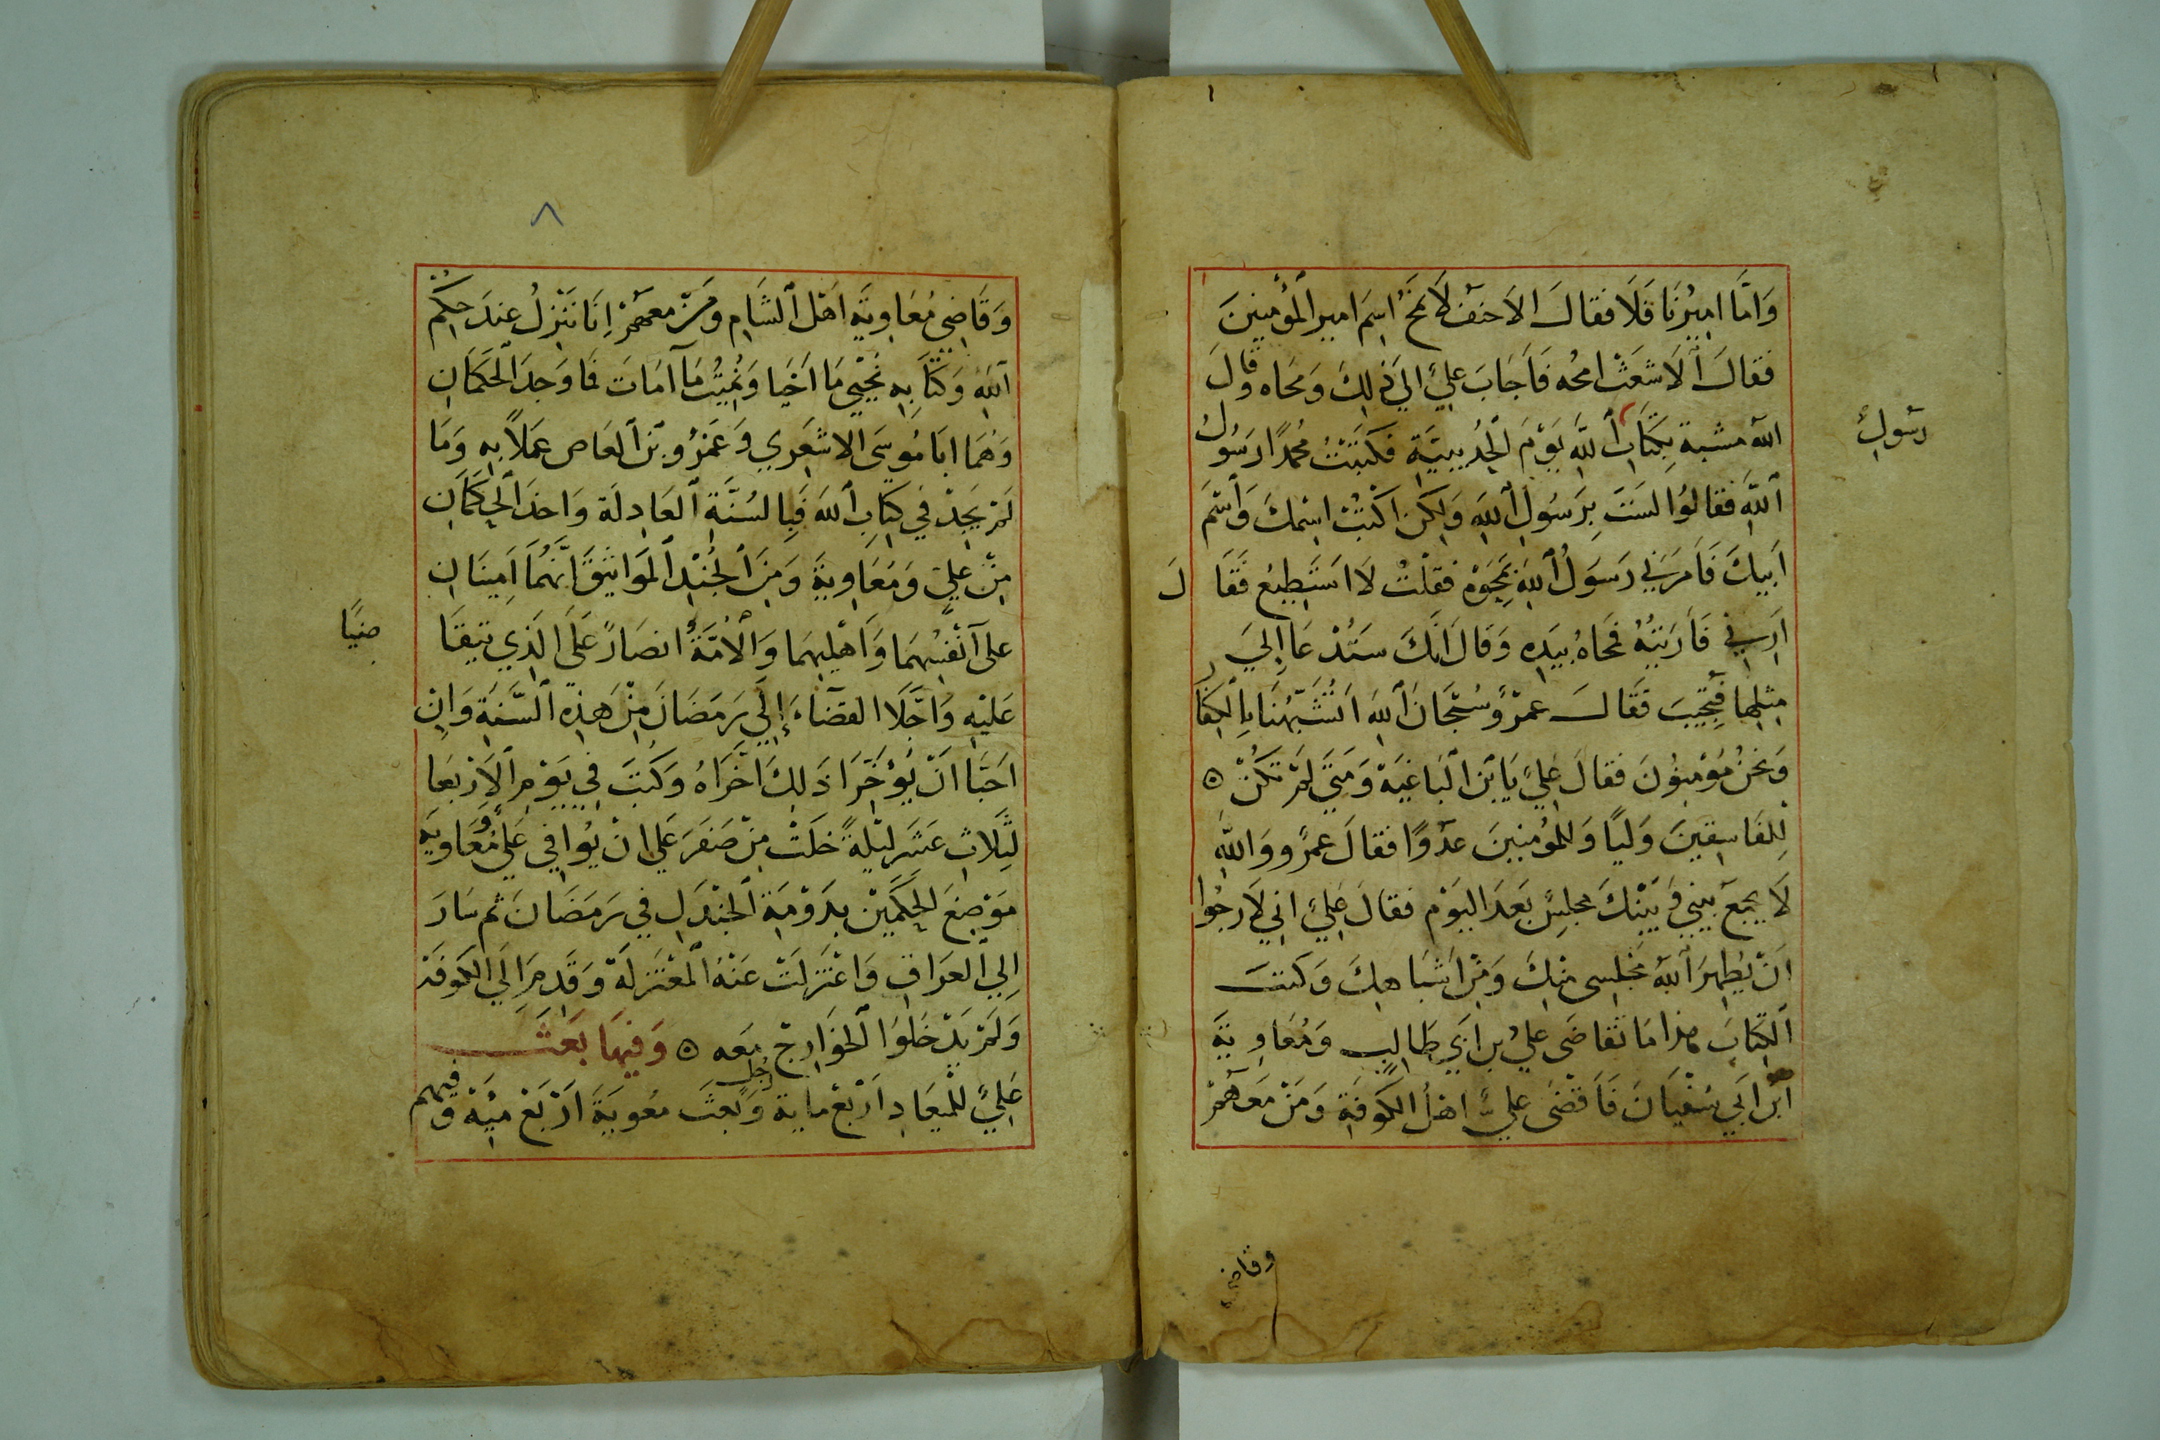 وَامَّا امِيْرُنَا فَلَا فقالَ الاحنف لَا تَمْحُ اسِمَ امير المؤمِنينَ
فقالَ الَاشعَثْ امحُه فَاَجَابَ عَليٌّ الىَ ذلِكَ وَمحَاه وقالَ
رَسُولِ
الله مشبة بِكتَابِ اللَّهِ يَوْمَ الحُديبيَّةِ فكَتَبْتُ مُحمدًا رَسُولُ
اللَّهِ فقالوُا لسَتَ بِرَسُولِ اللهِ وَلكِن اكْتبُْ اسْمكَ وَاسْمَ
اَبيكَ فَاَمَرَني رَسوَلُ اللهِ بمَحِوْهِ فقلْتُ لَا استَطِيع فَقَالَ
اَرِنِي فَاَرَيتُهُ فمحَاهُ بيَدِهِ وَقَالَ انكَّ ستَدُْعَا الِىَ
مِثلهِا فتُجِيبَ فقَالَ عمرْوٌ سُبْحَانَ اللهِ اَتشُبِّهُنَا بِالكفَارِ
وَنحنُ مُؤْمِنوُنَ فقالَ عَليٌّ يَا ابْنَ البَاغيَة وَمَتىَ لمْ تكَُنْ ه
لِلفَاسِقينَ وَليًا وَللمُؤْمِنينَ عدُوًا فقالَ عمرٌو وَاللهِ
لَا يجمع بيَنِي وَبيْنكَ مجلسٌِ بَعدَ اليَوْم فقالَ عَليٌّ اني لَارجُوا
اَنْ يُطهِرَ اللهُ مَجْلسِى مِنكَ وَمِنْ اَشبَاهِكَ وَكتبَ
الكِتَابَ هذا مَا تقَاضَى عَليُ بن ابَي طاَلبٍ وَمُعَاوِيَة
ابْن ابَي سُفيَانَ فَاقْضَى عَليٌّ اهْل الكوفَةِ وَمَنْ مَعهَمْ
وقاضى
٨
وَقَاضِى مُعَاوِيَة اهَلَ الشَامِ وَمَنْ معَهمُْ انِا نَنْزِلُ عِندَ حكِمْ
اللهِ وَكتَابِهِ نُحيْي مَا اَحْيَا وَنُميْتُ مَا اَمَاتَ فمَا وَجدَ الحَكمَانِ
وَهُمَا ابَا مُوسَى الاشعَرِي وَعَمْرُو بْن العَاص عَملاً بِه وَمَا
لَمْ يجَدْ في كتِابِ اللهِ فَبِالسُنَّةِ العَادِلَة وَاخذَ الحَكمَانِ
مِنْ عَليٍّ وَمُعَاوِيَةَ وَمِنَ الجُنْدِ المَوَاثيقَ اَنَّهُمَا اَمِينَانِ
على اَنفُسِهِمَا وَاَهْلِهِمَا وَالاُمَّةُ انصَارٌ عَلىَ الذِي
عَليْهِ وَاَجَّلَا القضَاءَ الِىَ رَمَضَانَ مِنْ هَذِهِ السَّنَةِ وَانْ
احَبَّا اَنْ يُؤَخِّرَا ذَلِكَ اَخَّرَاهُ وَكُتبَ فِي يَوْمِ الاَرْبعَا
لِثلَاثِ عَشَر لَيْلَةً خلَتْ مِنْ صَفرَ عَلى انْ يُوَافي عَليٌّ وَمُعَاويَة
مَوْضِعَ الحَكَمَيْن بدَوْمَةِ الجَندَلِ في رَمَضَانَ ثم سَارَ
الِىَ العَراقِ وَاعْتزَلَتْ عَنْهُ المعْتَزلَةْ وَقَدمَ الَى الكَوفَة
وَلَمْ يَدْخلُوَا الخوَارِجْ مَعَه ه وَفيِهَا بَعَثَ
عَليٌّ للْميَعَادِ اَرْبعَ ماية رَجل وَبَعثَ معُويَةَ ارْبَعْ مئَِة وَفيهم